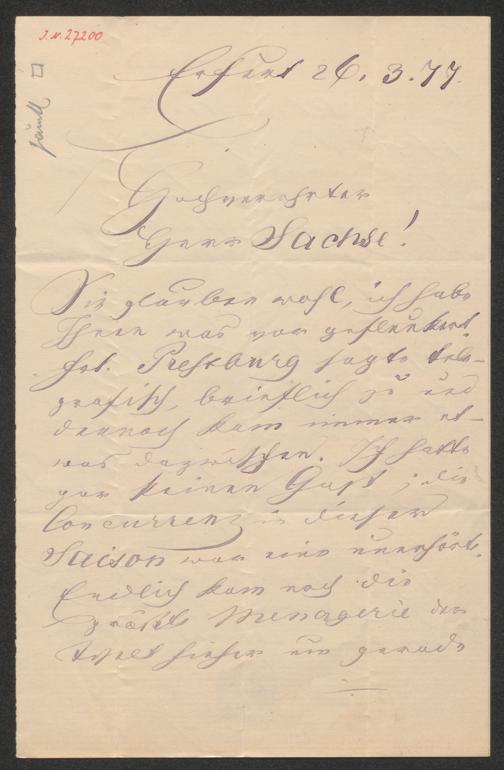 J.N. 27200
Erfurt 26. 3. 77.
Hochverehrter
Herr Sachse!
Sie glauben wohl, ich habe
Ihnen was vor geflunkert.
Frl. Preßburg sagte tele-
grafisch, brieflich zu und
dennoch kam immer et-
was dazwischen. Ich hatte
gar keinen Gast, die
Concurrenz in dieser
Saison war eine unerhörte.
Endlich kam noch die
größte Menagerie der
Welt hieher um gerade